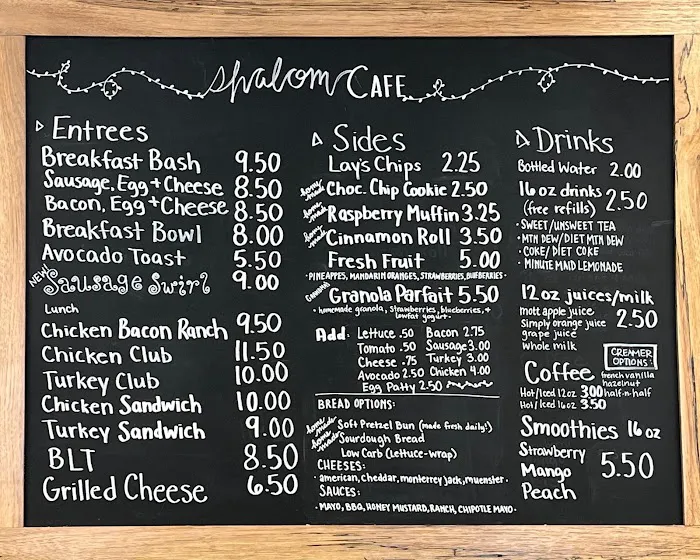 shalom CAFE
Entrees
Breakfast Bash 9.50
Sausage, Egg + Cheese 8.50
Bacon, Egg + Cheese 8.50
Breakfast Bowl 8.00
Avocado Toast 5.50
NEW Sausage Swirl 9.00
Lunch
Chicken Bacon Ranch 9.50
Chicken Club 11.50
Turkey Club 10.00
Chicken Sandwich 10.00
Turkey Sandwich 9.00
BLT 8.50
Grilled Cheese 6.50
Sides
Lay's Chips 2.25
home made Choc. Chip Cookie 2.50
home made Raspberry Muffin 3.25
home made Cinnamon Roll 3.50
Fresh Fruit 5.00
· PINEAPPLES, MANDARIN ORANGES, STRAWBERRIES, BLUEBERRIES ·
Granola Parfait 5.50
· homemade granola, strawberries, blueberries, +
lowfat yogurt ·
Add: Lettuce .50 Bacon 2.75
Tomato .50 Sausage 3.00
Cheese .75 Turkey 3.00
Avocado 2.50 Chicken 4.00
Egg Patty 2.50
BREAD OPTIONS:
home made Soft Pretzel Bun (made fresh daily!)
home made Sourdough Bread
Low Carb (Lettuce-wrap)
CHEESES:
· american, cheddar, monterrey jack, muenster ·
SAUCES:
· MAYO, BBQ, HONEY MUSTARD, RANCH, CHIPOTLE MAYO ·
Drinks
Bottled Water 2.00
16 oz drinks 2.50
(free refills)
· SWEET/UNSWEET TEA
· MTN DEW/DIET MTN DEW
· COKE/DIET COKE
· MINUTE MAID LEMONADE
12 oz juices/milk
mott apple juice 2.50
Simply orange juice
grape juice
Whole milk
CREAMER
OPTIONS:
french vanilla
hazelnut
half-n-half
Coffee
Hot/Iced 12oz 3.00
Hot/Iced 16oz 3.50
Smoothies 16 oz
Strawberry
Mango 5.50
Peach